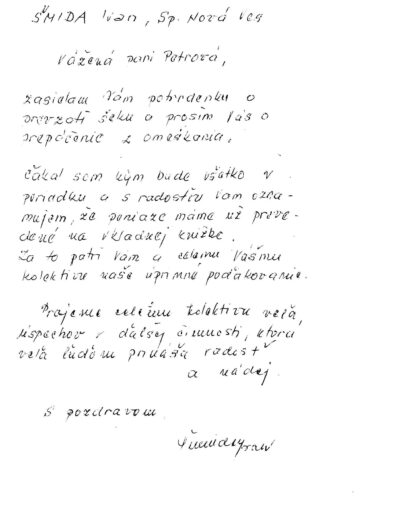 ŠMIDA Ivan, Sp. Nová Ves
Vážená pani Petrová,
zasielam Vám potvrdenku o
prevzatí šeku a prosím Vás o
prepáčenie z omeškania.
Čakal som kým bude všetko v
poriadku a s radosťou Vám ozna-
mujem, že peniaze máme už preve-
dené na vkladnej knižke.
Za to patrí Vám a celému Vášmu
kolektívu naše úprimné poďakovanie.
Prajeme celému kolektívu veľa
úspechov v ďalšej činnosti, ktorá
veľa ľuďom prináša radosť
a nádej.
S pozdravom